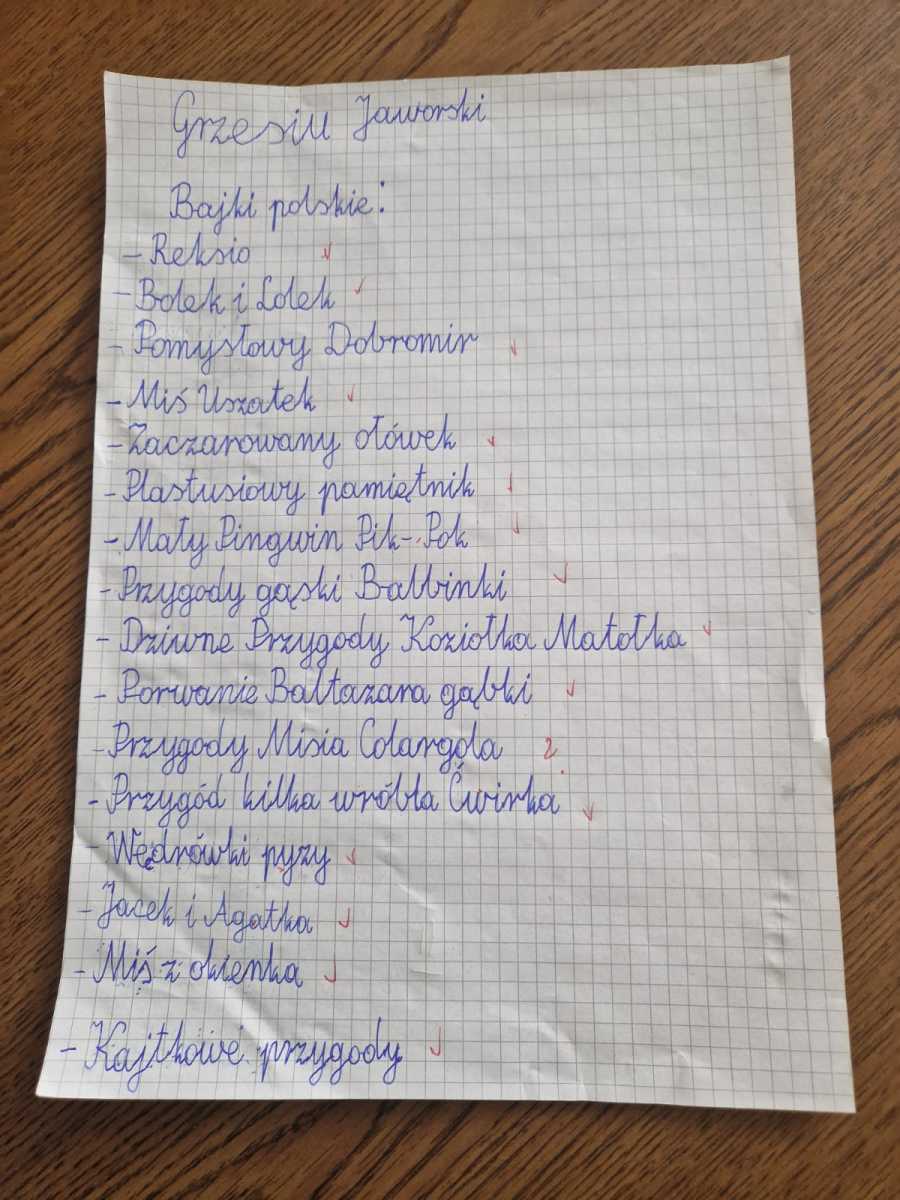 Grzesiu Jaworski
Bajki polskie:
- Reksio ✓
- Bolek i Lolek ✓
- Pomysłowy Dobromir ✓
- Miś Uszatek ✓
- Zaczarowany ołówek ✓
- Plastusiowy pamiętnik ✓
- Mały Pingwin Pik-Pok ✓
- Przygody gąski Balbinki ✓
- Dziwne Przygody Koziołka Matołka ✓
- Porwanie Baltazara gąbki ✓
- Przygody Misia Colargola ?
- Przygód kilka wróbla Ćwirka ✓
- Wędrówki pyzy ✓
- Jacek i Agatka ✓
- Miś z okienka ✓
- Kajtkowe przygody ✓